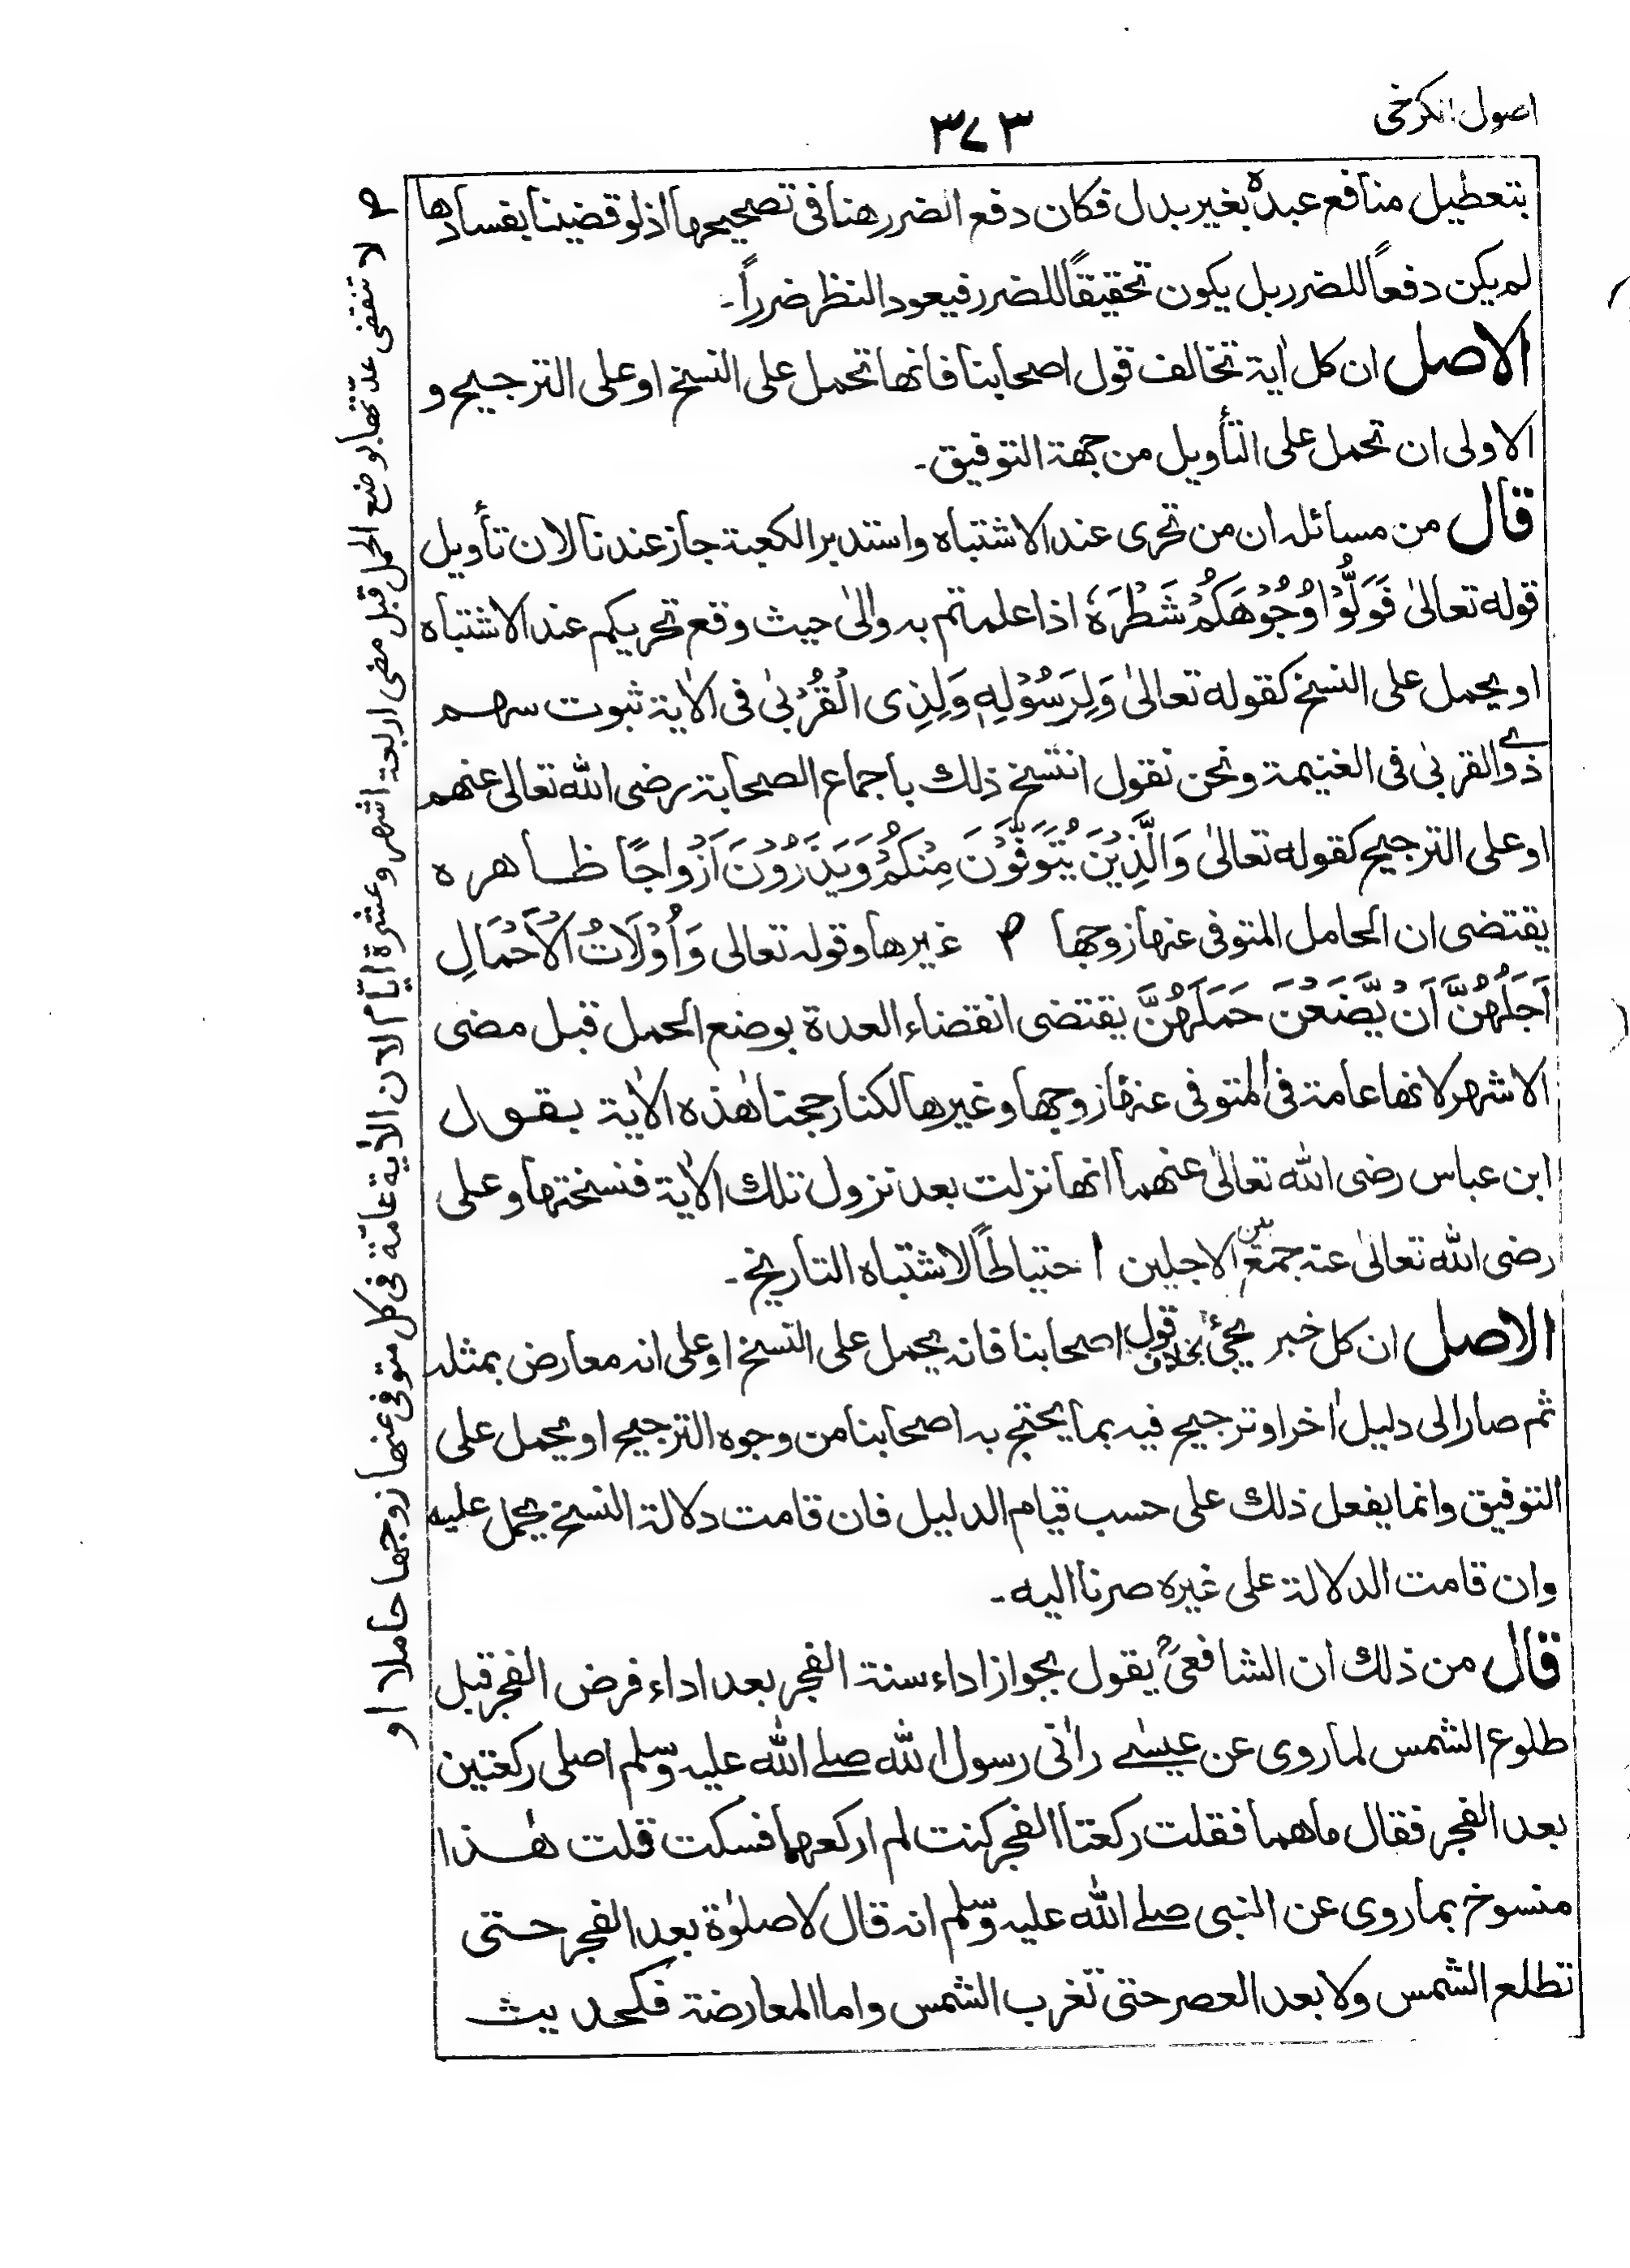 اصول الكرخى
٣٧٣
بتعطيل منافع عبده بغير بدل فكان دفع الضرر هنا فى تصحيحها اذ لو قضينا بفسادها
لم يكن دفعاً للضرر بل يكون تحقيقاً للضرر فيعود النظر ضرراً۔
الاصل ان كل اٰية تخالف قول اصحابنا فانها تحمل على النسخ او على الترجيح و
الاولى ان تحمل على التأويل من جهة التوفيق۔
قال من مسائله ان من تحرى عند الاشتباه واستدبر الكعبة جاز عندنا لان تأويل
قوله تعالىٰ فَوَلُّوْا وُجُوْهَكُمْ شَطْرَهٗ اذا علمتم به والىٰ حيث وقع تحريكم عند الاشتباه
او يحمل على النسخ كقوله تعالىٰ وَلِرَسُوْلِهٖ وَلِذِى الْقُرْبىٰ فى الاٰية ثبوت سهم
ذوى القربىٰ فى الغنيمة ونحن نقول انتسخ ذلك باجماع الصحابة رضى الله تعالى عنهم
او على الترجيح كقوله تعالىٰ وَالَّذِيْنَ يُتَوَفَّوْنَ مِنْكُمْ وَيَذَرُوْنَ اَزْوَاجًا ظاهره
يقتضى ان الحامل المتوفى عنها زوجها ٢ غيرها وقوله تعالى وَاُوْلَاتُ الْاَحْمَالِ
اَجَلُهُنَّ اَنْ يَّضَعْنَ حَمْلَهُنَّ يقتضى انقضاء العدة بوضع الحمل قبل مضى
الاشهر لانها عامة فى المتوفى عنها زوجها وغيرها لكنا رجحنا هٰذه الاٰية بقول
ابن عباس رضى الله تعالىٰ عنهما انها نزلت بعد نزول تلك الاٰية فنسختها وعلى
رضى الله تعالىٰ عنه جمع بين الاجلين احتياطاً لاشتباه التاريخ۔
الاصل ان كل خبر يجئ بخلاف قول اصحابنا فانه يحمل على النسخ او على انه معارض بمثله
ثم صار الى دليل اٰخر او ترجيح فيه بما يحتج به اصحابنا من وجوه الترجيح او يحمل على
التوفيق وانما يفعل ذلك على حسب قيام الدليل فان قامت دلالة النسخ يحمل عليه
وان قامت الدلالة على غيره صرنا اليه۔
قال من ذلك ان الشافعىؒ يقول بجواز اداء سنة الفجر بعد اداء فرض الفجر قبل
طلوع الشمس لما روى عن عيسٰے راٰنى رسول الله صلے الله عليه وسلم اصلى ركعتين
بعد الفجر فقال ماهما فقلت ركعتا الفجر كنت لم اركعهما فسكت قلت هٰذا
منسوخ بما روى عن النبى صلے الله عليه وسلم انه قال لا صلوٰة بعد الفجر حتى
تطلع الشمس ولا بعد العصر حتى تغرب الشمس واما المعارضة فكحديث
٢ لا تنقضى عدّتها بوضع الحمل قبل مضى اربعة اشهر وعشرة ايّام لان الاٰية عامّة فى كل متوفى عنها زوجها حاملا او